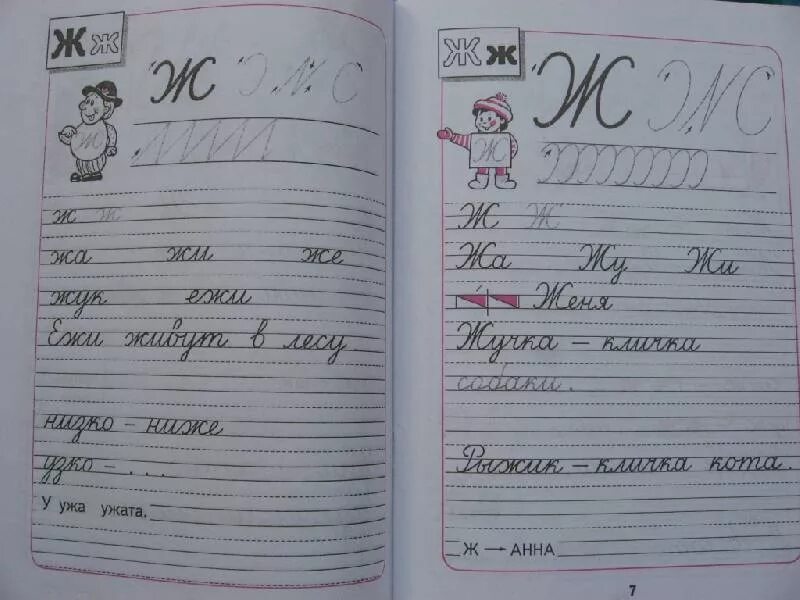 Ж ж
Ж Э И С
Ж
ж ж
жа жи же
жук ежи
Ежи живут в лесу
низко – ниже
узко – . . .
У ужа ужата.
Ж ж
Ж Э И С
Ж
Ж Ж
Жа Жу Жи
Женя
Жучка – кличка
собаки.
Рыжик – кличка кота.
Ж → АННА
7